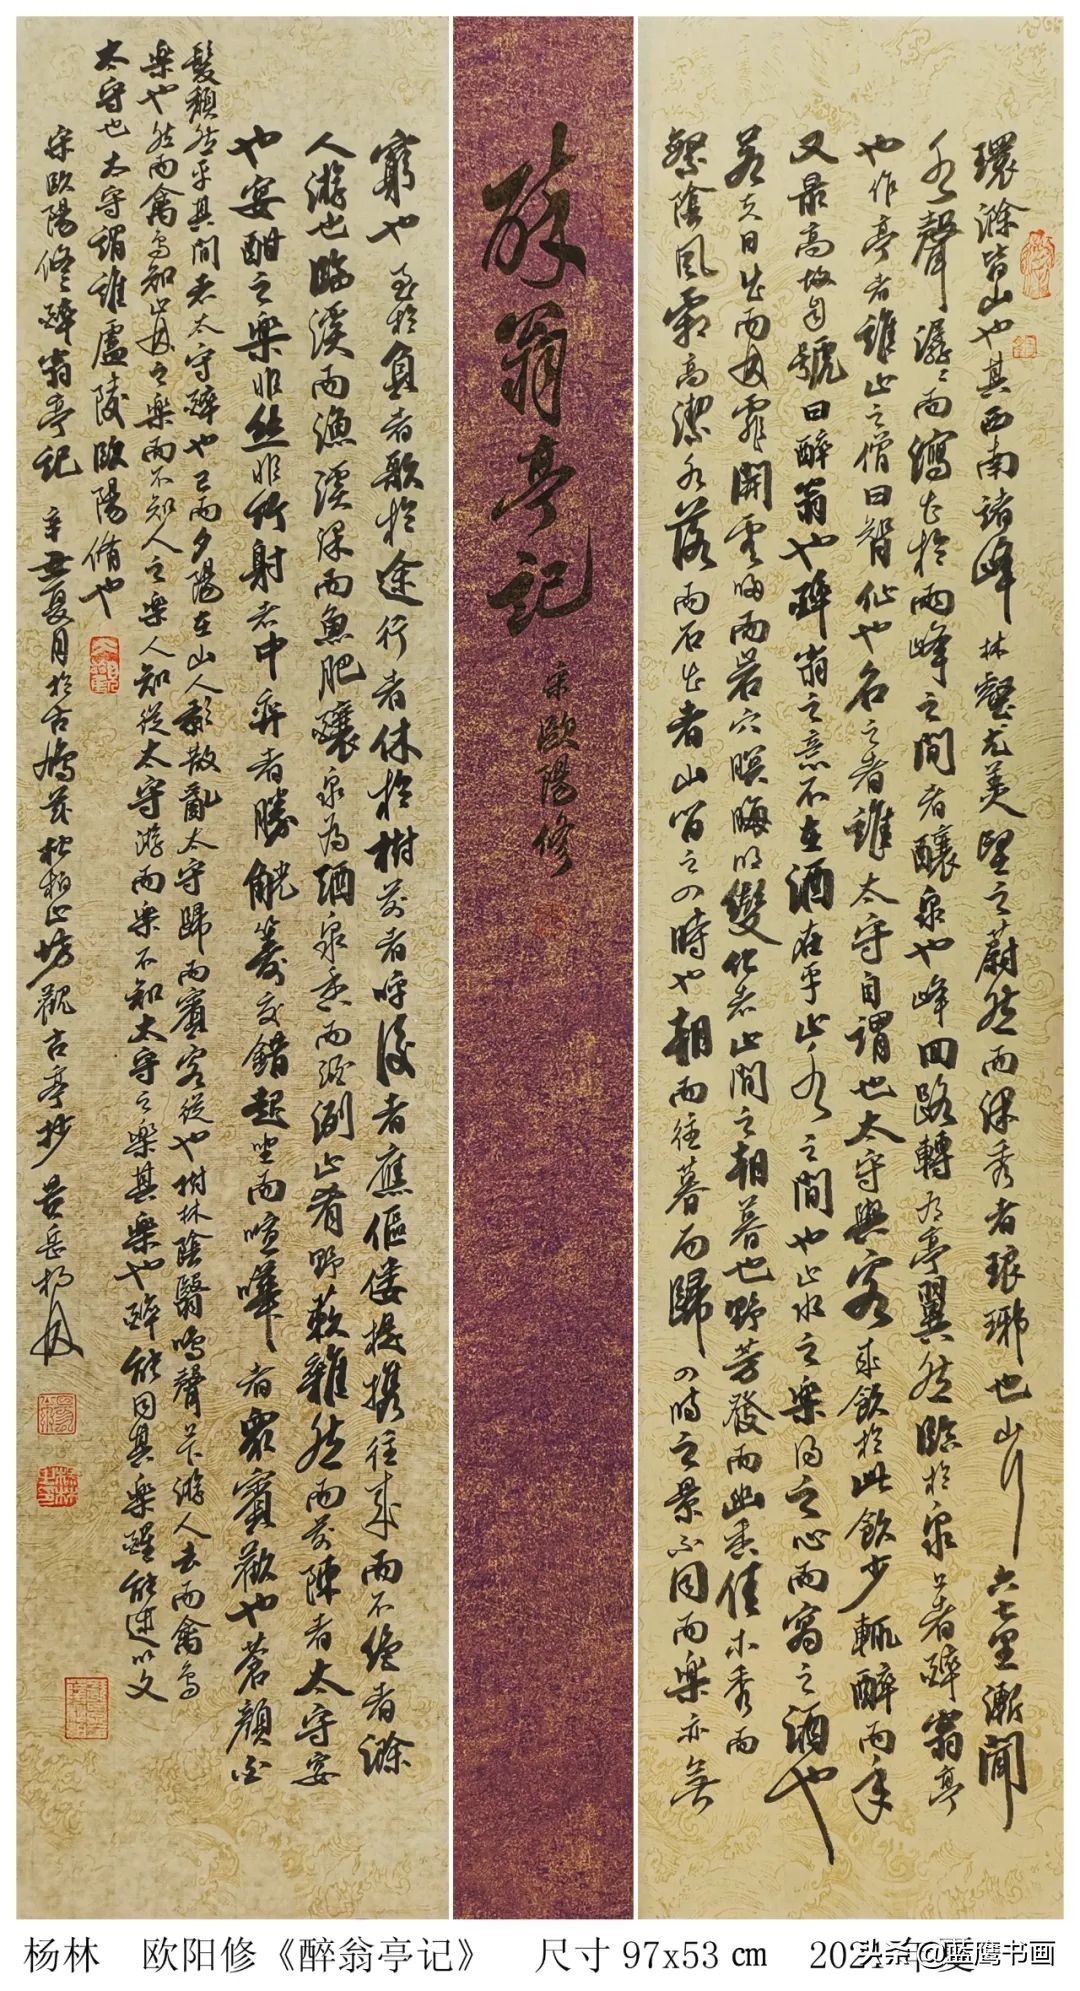 環滁皆山也其西南諸峰林壑尤美望之蔚然而深秀者琅琊也山行六七里漸聞
水聲潺々而瀉出於兩峰之間者釀泉也峰回路轉有亭翼然臨於泉上者醉翁亭
也作亭者誰山之僧曰智仙也名之者誰太守自謂也太守與客來飲於此飲少輒醉而年
又最高故自號曰醉翁也醉翁之意不在酒在乎山水之間也山水之樂得之心而寓之酒也
若夫日出而林霏開雲歸而岩穴暝晦明變化者山間之朝暮也野芳發而幽香佳木秀而
繁陰風霜高潔水落而石出者山間之四時也朝而往暮而歸四時之景不同而樂亦無
醉翁亭記
宋歐陽修
窮也至於負者歌於途行者休於樹前者呼後者應傴僂提攜往來而不絕者滁
人游也臨溪而漁溪深而魚肥釀泉為酒泉香而酒洌山肴野蔌雜然而前陳者太守宴
也宴酣之樂非絲非竹射者中弈者勝觥籌交錯起坐而喧嘩者眾賓歡也蒼顏白
髮頹然乎其間者太守醉也已而夕陽在山人影散亂太守歸而賓客從也樹林陰翳鳴聲上下游人去而禽鳥
樂也然而禽鳥知山林之樂而不知人之樂人知從太守游而樂不知太守之樂其樂也醉能同其樂醒能述以文
太守也太守謂誰廬陵歐陽脩也
宋歐陽修醉翁亭記 辛丑夏月於古鳩茲松柏山坊觀古亭抄 岳楊林
杨林 欧阳修《醉翁亭记》 尺寸97x53cm 2021年夏
头条@蓝鹰书画